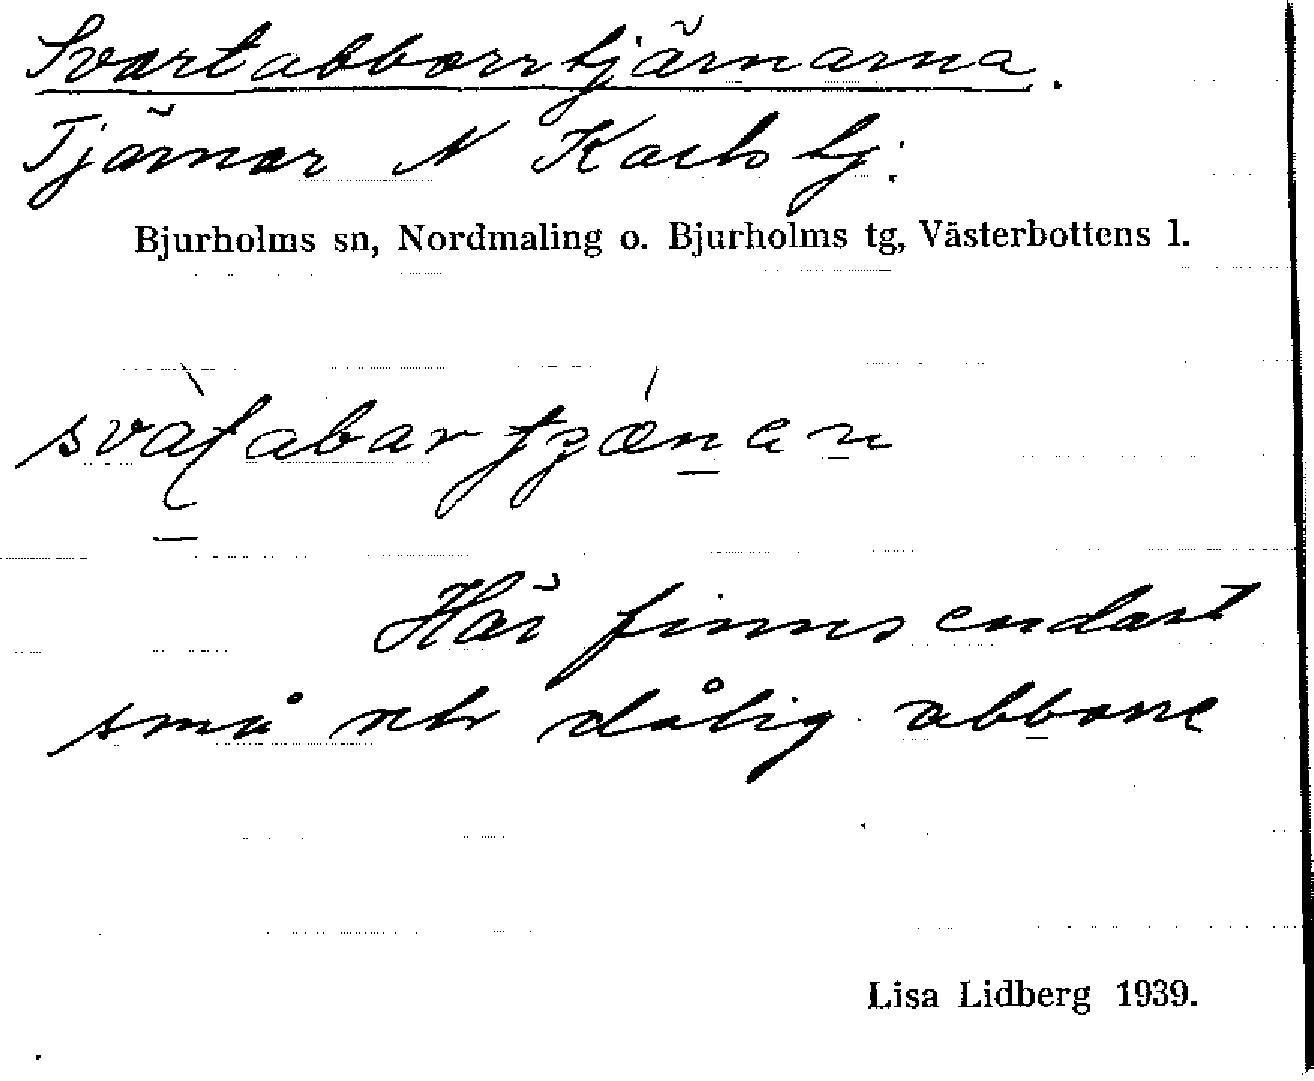 Svartabborrtjärnarna.
Tjärnar N
Bjurholms sn, Nordmaling o. Bjurholms tg, Västerbottens l.
Här finns endast
små och dålig abborre
Lisa Lidberg 1939.